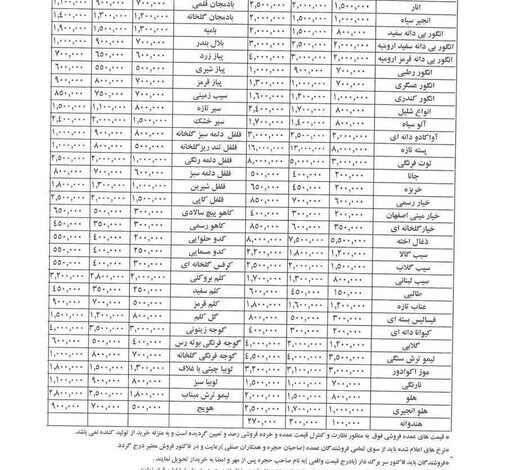 انار ۱,۵۰۰,۰۰۰ ۲,۰۰۰,۰۰۰ ۲,۵۰۰,۰۰۰ بادمجان قلمی ۷۰۰,۰۰۰ ۹۰۰,۰۰۰ ۱,۱۰۰,۰۰۰
انجیر سیاه بادمجان گلخانه ۱,۲۰۰,۰۰۰ ۱,۳۰۰,۰۰۰ ۱,۴۰۰,۰۰۰
انگور بی دانه سفید ۸۰۰,۰۰۰ ۱,۵۰۰,۰۰۰ بامیه
انگور بی دانه سفید ارومیه ۲,۰۰۰,۰۰۰ بلال بندر ۷۰۰,۰۰۰ ۸۰۰,۰۰۰
انگور بی دانه قرمز ارومیه ۲,۰۰۰,۰۰۰ ۳,۰۰۰,۰۰۰ ۴,۰۰۰,۰۰۰ پیاز زرد ۷۰۰,۰۰۰
انگور رطبی ۷۰۰,۰۰۰ ۹۰۰,۰۰۰ پیاز شیری ۵۰۰,۰۰۰ ۵۵۰,۰۰۰ ۶۰۰,۰۰۰
انگور عسگری ۷۰۰,۰۰۰ ۱,۱۰۰,۰۰۰ ۱,۳۰۰,۰۰۰ پیاز قرمز ۷۰۰,۰۰۰ ۸۰۰,۰۰۰ ۹۰۰,۰۰۰
انگور کندری ۱,۰۰۰,۰۰۰ ۱,۲۰۰,۰۰۰ ۱,۶۰۰,۰۰۰ سیب زمینی ۷۰۰,۰۰۰ ۷۵۰,۰۰۰ ۸۵۰,۰۰۰
انواع شلیل ۸۰۰,۰۰۰ ۱,۷۰۰,۰۰۰ ۲,۴۰۰,۰۰۰ سیر تازه ۸۰۰,۰۰۰ ۱,۱۰۰,۰۰۰ ۱,۵۰۰,۰۰۰
آلو سیاه ۸۰۰,۰۰۰ ۱,۲۰۰,۰۰۰ ۱,۷۰۰,۰۰۰ سیر خشک ۱,۵۰۰,۰۰۰ ۲,۰۰۰,۰۰۰ ۲,۴۰۰,۰۰۰
آواکادو دانه ای ۲,۰۰۰,۰۰۰ ۲,۵۰۰,۰۰۰ ۳,۰۰۰,۰۰۰ فلفل دلمه سبز گلخانه ۸۰۰,۰۰۰ ۹۰۰,۰۰۰ ۱,۰۰۰,۰۰۰
پسته تازه ۸,۰۰۰,۰۰۰ ۱۳,۰۰۰,۰۰۰ ۱۶,۰۰۰,۰۰۰ فلفل تند ریز گلخانه ۵۰۰,۰۰۰ ۸۰۰,۰۰۰ ۱,۰۰۰,۰۰۰
توت فرنگی ۳,۰۰۰,۰۰۰ ۵,۰۰۰,۰۰۰ ۸,۰۰۰,۰۰۰ فلفل دلمه رنگی ۱,۰۰۰,۰۰۰ ۲,۰۰۰,۰۰۰ ۲,۵۰۰,۰۰۰
جانا ۲۰۰,۰۰۰ ۴۰۰,۰۰۰ ۵۰۰,۰۰۰ فلفل دلمه سبز ۶۰۰,۰۰۰ ۷۰۰,۰۰۰ ۸۰۰,۰۰۰
خربزه ۲۰۰,۰۰۰ ۴۵۰,۰۰۰ ۶۵۰,۰۰۰ فلفل شیرین ۱,۱۰۰,۰۰۰ ۱,۳۰۰,۰۰۰ ۱,۸۰۰,۰۰۰
خیار رسمی ۶۰۰,۰۰۰ ۷۰۰,۰۰۰ ۸۵۰,۰۰۰ فلفل کاپی ۱,۵۰۰,۰۰۰ ۲,۰۰۰,۰۰۰ ۲,۵۰۰,۰۰۰
خیار مینی اصفهان ۲۰۰,۰۰۰ ۳۰۰,۰۰۰ ۴۰۰,۰۰۰ کاهو پیچ سالادی ۳۰۰,۰۰۰ ۵۰۰,۰۰۰ ۶۵۰,۰۰۰
خیار گلخانه ای ۳۵۰,۰۰۰ ۶۰۰,۰۰۰ ۸۵۰,۰۰۰ کاهو رسمی ۳۵۰,۰۰۰ ۴۵۰,۰۰۰
ذغال اخته ۵,۵۰۰,۰۰۰ ۷,۵۰۰,۰۰۰ ۸,۰۰۰,۰۰۰ کدو حلوایی ۲۰۰,۰۰۰ ۴۰۰,۰۰۰ ۵۵۰,۰۰۰
سیب گالا ۱,۲۰۰,۰۰۰ ۲,۰۰۰,۰۰۰ ۲,۵۰۰,۰۰۰ کدو مسمایی ۲۵۰,۰۰۰ ۴۰۰,۰۰۰ ۵۵۰,۰۰۰
سیب گلاب ۱,۲۰۰,۰۰۰ ۲,۰۰۰,۰۰۰ ۲,۵۰۰,۰۰۰ کرفس گلخانه ای ۴۰۰,۰۰۰ ۵۵۰,۰۰۰
سیب لبنانی ۸۰۰,۰۰۰ ۱,۳۰۰,۰۰۰ ۱,۷۰۰,۰۰۰ کلم بروکلی ۲,۰۰۰,۰۰۰ ۲,۸۰۰,۰۰۰ ۳,۲۰۰,۰۰۰
طالبی ۱۵۰,۰۰۰ ۴۵۰,۰۰۰ ۶۰۰,۰۰۰ کلم سفید ۲۵۰,۰۰۰ ۳۵۰,۰۰۰ ۴۵۰,۰۰۰
عناب تازه ۱,۲۰۰,۰۰۰ ۱,۶۰۰,۰۰۰ ۱,۸۰۰,۰۰۰ کلم قرمز ۵۰۰,۰۰۰ ۷۰۰,۰۰۰ ۹۰۰,۰۰۰
فیسالیس بسته ای ۲۰۰,۰۰۰ ۳۰۰,۰۰۰ گل کلم ۶۰۰,۰۰۰ ۸۰۰,۰۰۰
کیوانا دانه ای ۲۰۰,۰۰۰ ۴۰۰,۰۰۰ ۵۰۰,۰۰۰ گوجه زیتونی ۳,۰۰۰,۰۰۰ ۳,۵۰۰,۰۰۰ ۴,۰۰۰,۰۰۰
گلابی ۱,۲۰۰,۰۰۰ ۲,۰۰۰,۰۰۰ گوجه فرنگی بوته رس ۴۰۰,۰۰۰ ۵۰۰,۰۰۰ ۶۰۰,۰۰۰
لیمو ترش سنگی ۲,۰۰۰,۰۰۰ ۴,۰۰۰,۰۰۰ ۴,۵۰۰,۰۰۰ گوجه فرنگی گلخانه ۷۰۰,۰۰۰ ۸۰۰,۰۰۰
موز اکوادور ۳,۰۰۰,۰۰۰ ۳,۱۰۰,۰۰۰ ۳,۲۰۰,۰۰۰ لوبیا چیتی با غلاف ۱,۳۰۰,۰۰۰ ۱,۵۰۰,۰۰۰ ۱,۸۰۰,۰۰۰
نارنگی ۷۰۰,۰۰۰ لوبیا سبز ۸۰۰,۰۰۰ ۹۰۰,۰۰۰ ۱,۱۰۰,۰۰۰
هلو ۸۰۰,۰۰۰ ۲,۰۰۰,۰۰۰ ۲,۵۰۰,۰۰۰ لیمو ترش میناب ۲,۰۰۰,۰۰۰ ۲,۸۰۰,۰۰۰
هلو انجیری ۱,۰۰۰,۰۰۰ ۲,۵۰۰,۰۰۰ هویج ۵۰۰,۰۰۰ ۷۰۰,۰۰۰ ۹۰۰,۰۰۰
هندوانه ۲۰۰,۰۰۰ ۲۷۰,۰۰۰
* قیمت های عمده فروشی فوق به منظور نظارت و کنترل قیمت عمده و خرده فروشی رصد و تعیین گردیده است و به منزله خرید از تولید کننده نمی باشد.
*نرخ های اعلام شده باید از سوی تمامی فروشندگان عمده (صاحبان حجره و همکاران صنفی) رعایت و در فاکتور فروش معتبر درج گردد.
*فروشندگان باید فاکتور سر برگ دار (بادرج قیمت واقعی) به نام صاحب حجره پس از مهر و امضا به خریدار تحویل نمایند.